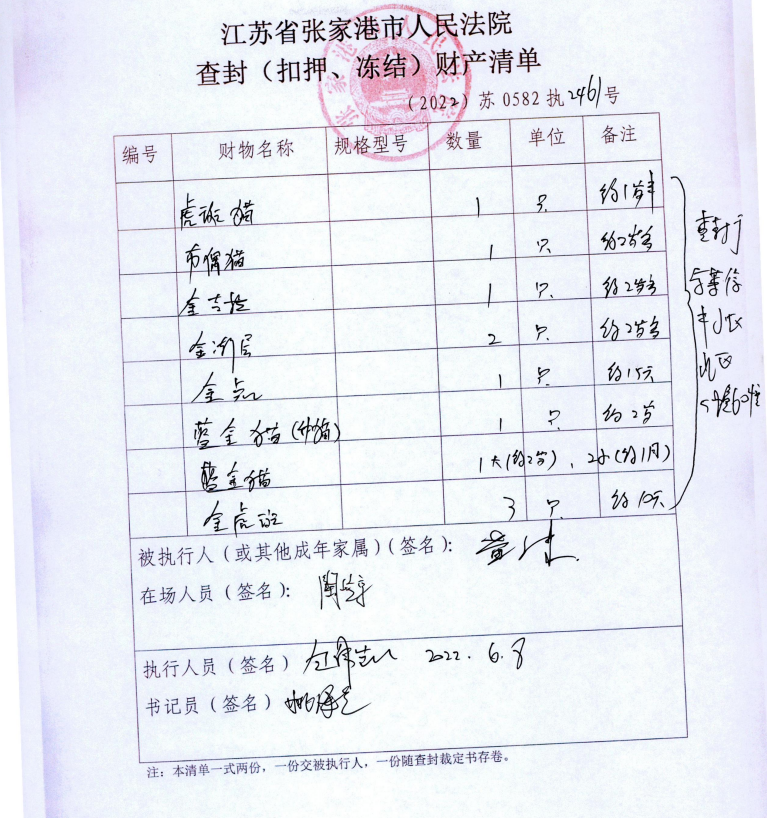 江苏省张家港市人民法院
查封（扣押、冻结）财产清单
（2022）苏 0582 执2461号
编号 财物名称 规格型号 数量 单位 备注
虎斑猫 1 只 约1岁半
布偶猫 1 只 约2岁多
金吉拉 1 只 约2岁多
金渐层 2 只 约2岁多
金点 1 只 约15天
蓝金猫 1 只 约2岁
蓝金猫 1大(约2岁)、2小(约1月)
金虎斑 3 只 约10天
查封于
小区
被执行人（或其他成年家属）（签名）：
在场人员（签名）：
执行人员（签名） 2022.6.8
书记员（签名）
注：本清单一式两份，一份交被执行人，一份随查封裁定书存卷。